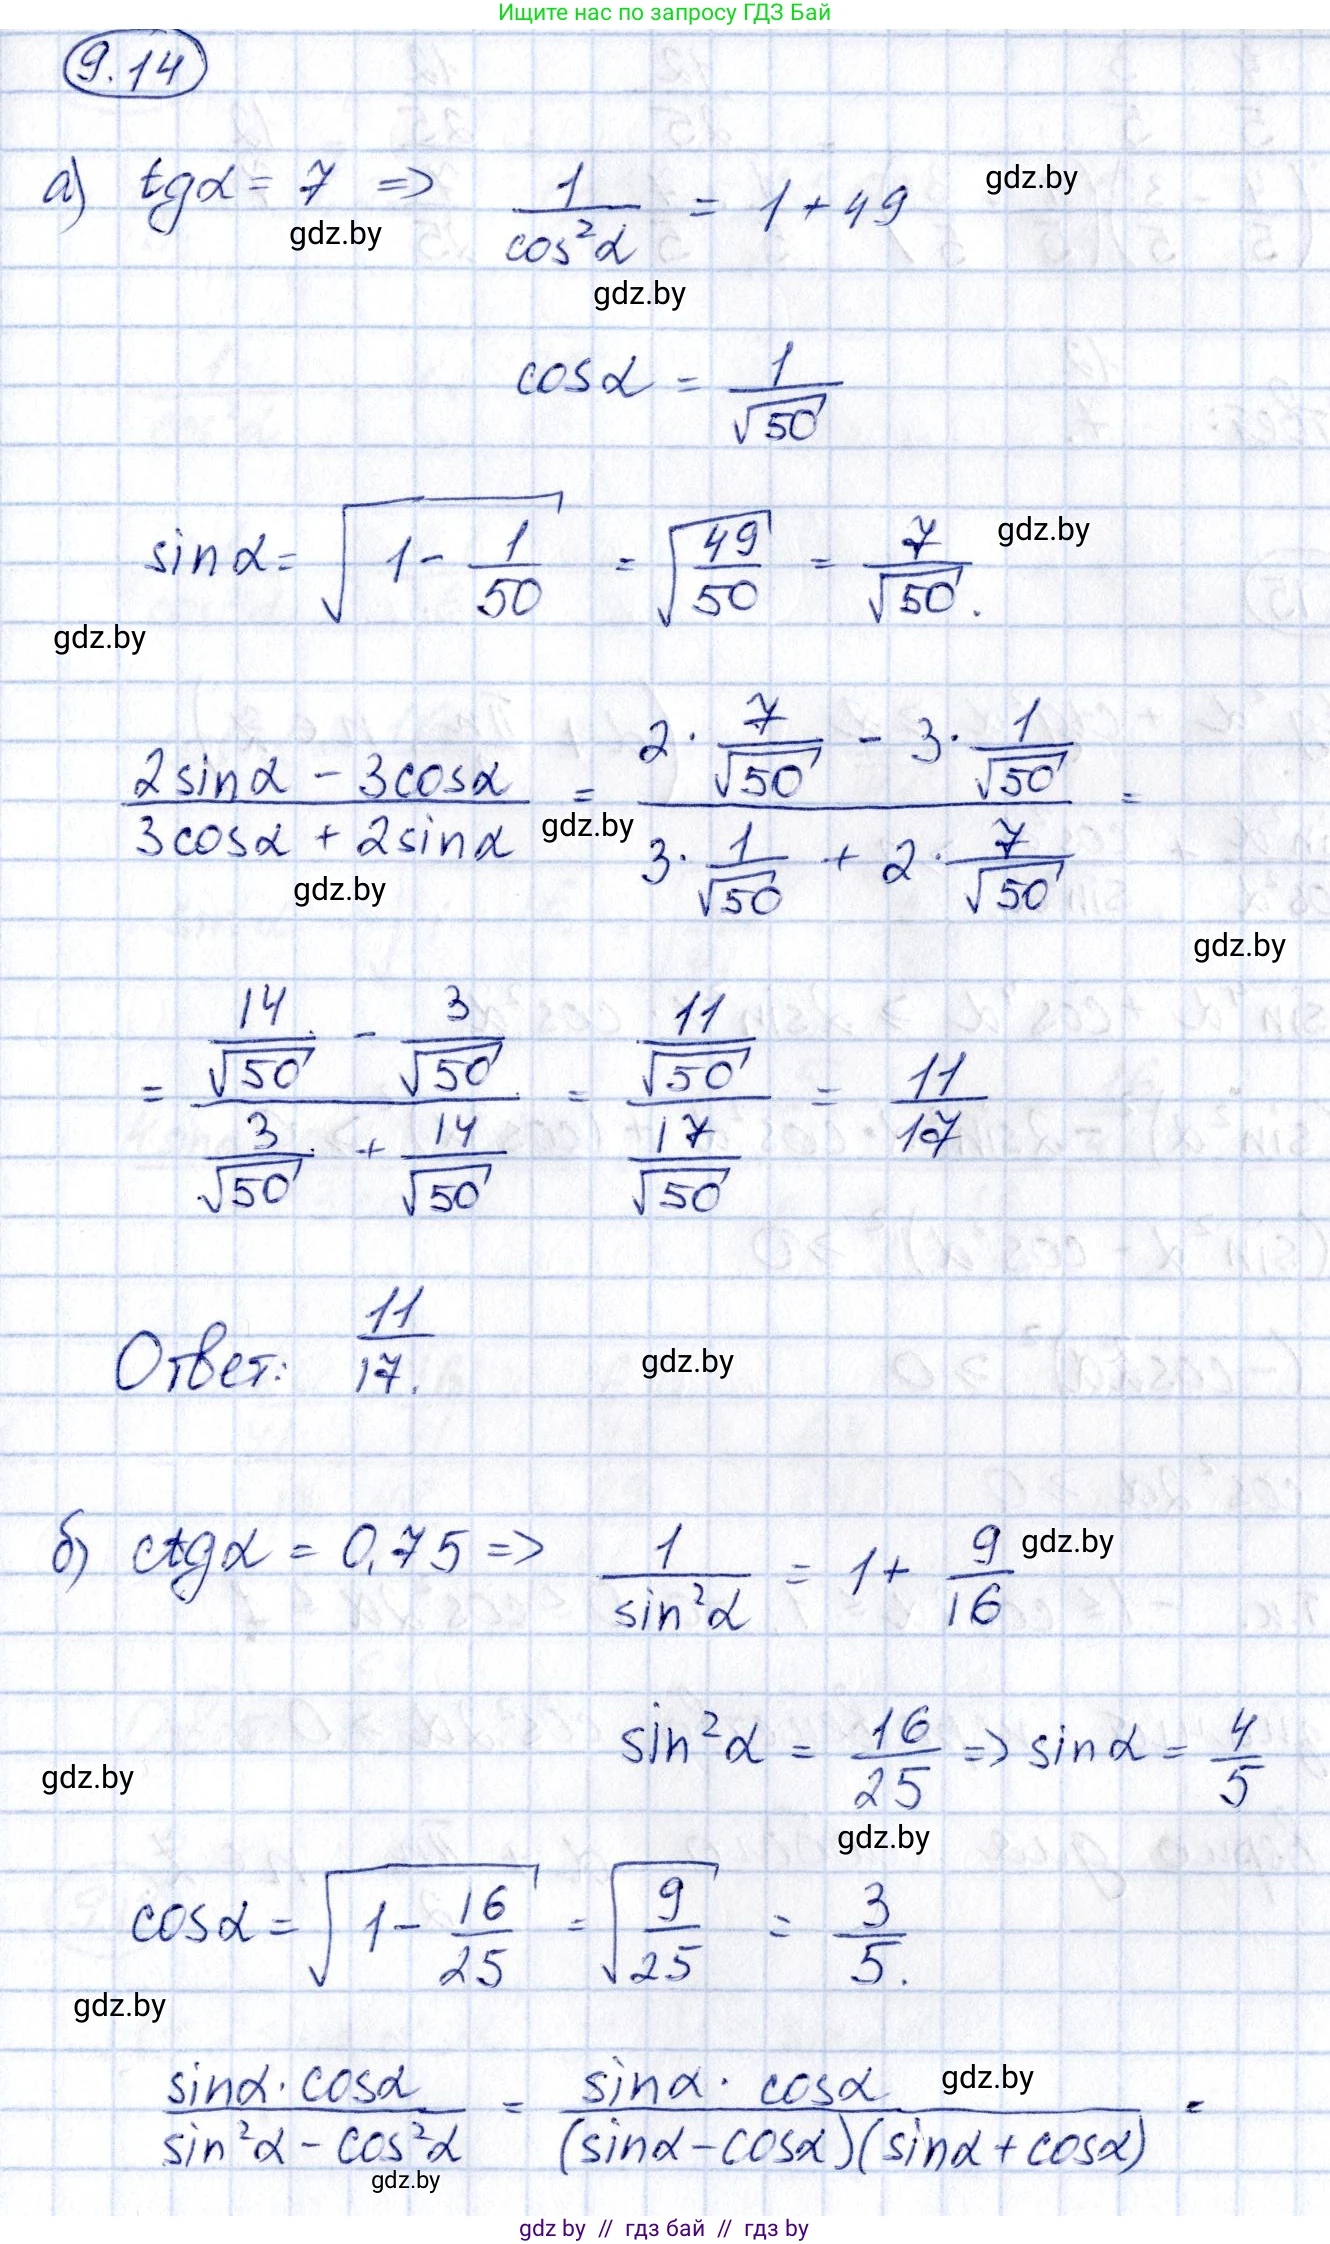 Ищите нас по запросу ГДЗ Бай
9.14
а) tgα = 7 => 1/cos²α = 1 + 49
gdz.by
gdz.by
gdz.by
cosα = 1/√50
sinα = √(1 - 1/50) = √(49/50) = 7/√50.
gdz.by
gdz.by
(2sinα - 3cosα)/(3cosα + 2sinα) = (2 · 7/√50 - 3 · 1/√50)/(3 · 1/√50 + 2 · 7/√50) =
gdz.by
gdz.by
gdz.by
= (14/√50 - 3/√50)/(3/√50 + 14/√50) = (11/√50)/(17/√50) = 11/17
Ответ: 11/17.
gdz.by
б) ctgα = 0,75 => 1/sin²α = 1 + 9/16
gdz.by
sin²α = 16/25 => sinα = 4/5
gdz.by
gdz.by
cosα = √(1 - 16/25) = √(9/25) = 3/5.
gdz.by
(sinα · cosα)/(sin²α - cos²α) = (sinα · cosα)/((sinα - cosα)(sinα + cosα)) =
gdz.by
gdz.by
gdz by // гдз бай // гдз by